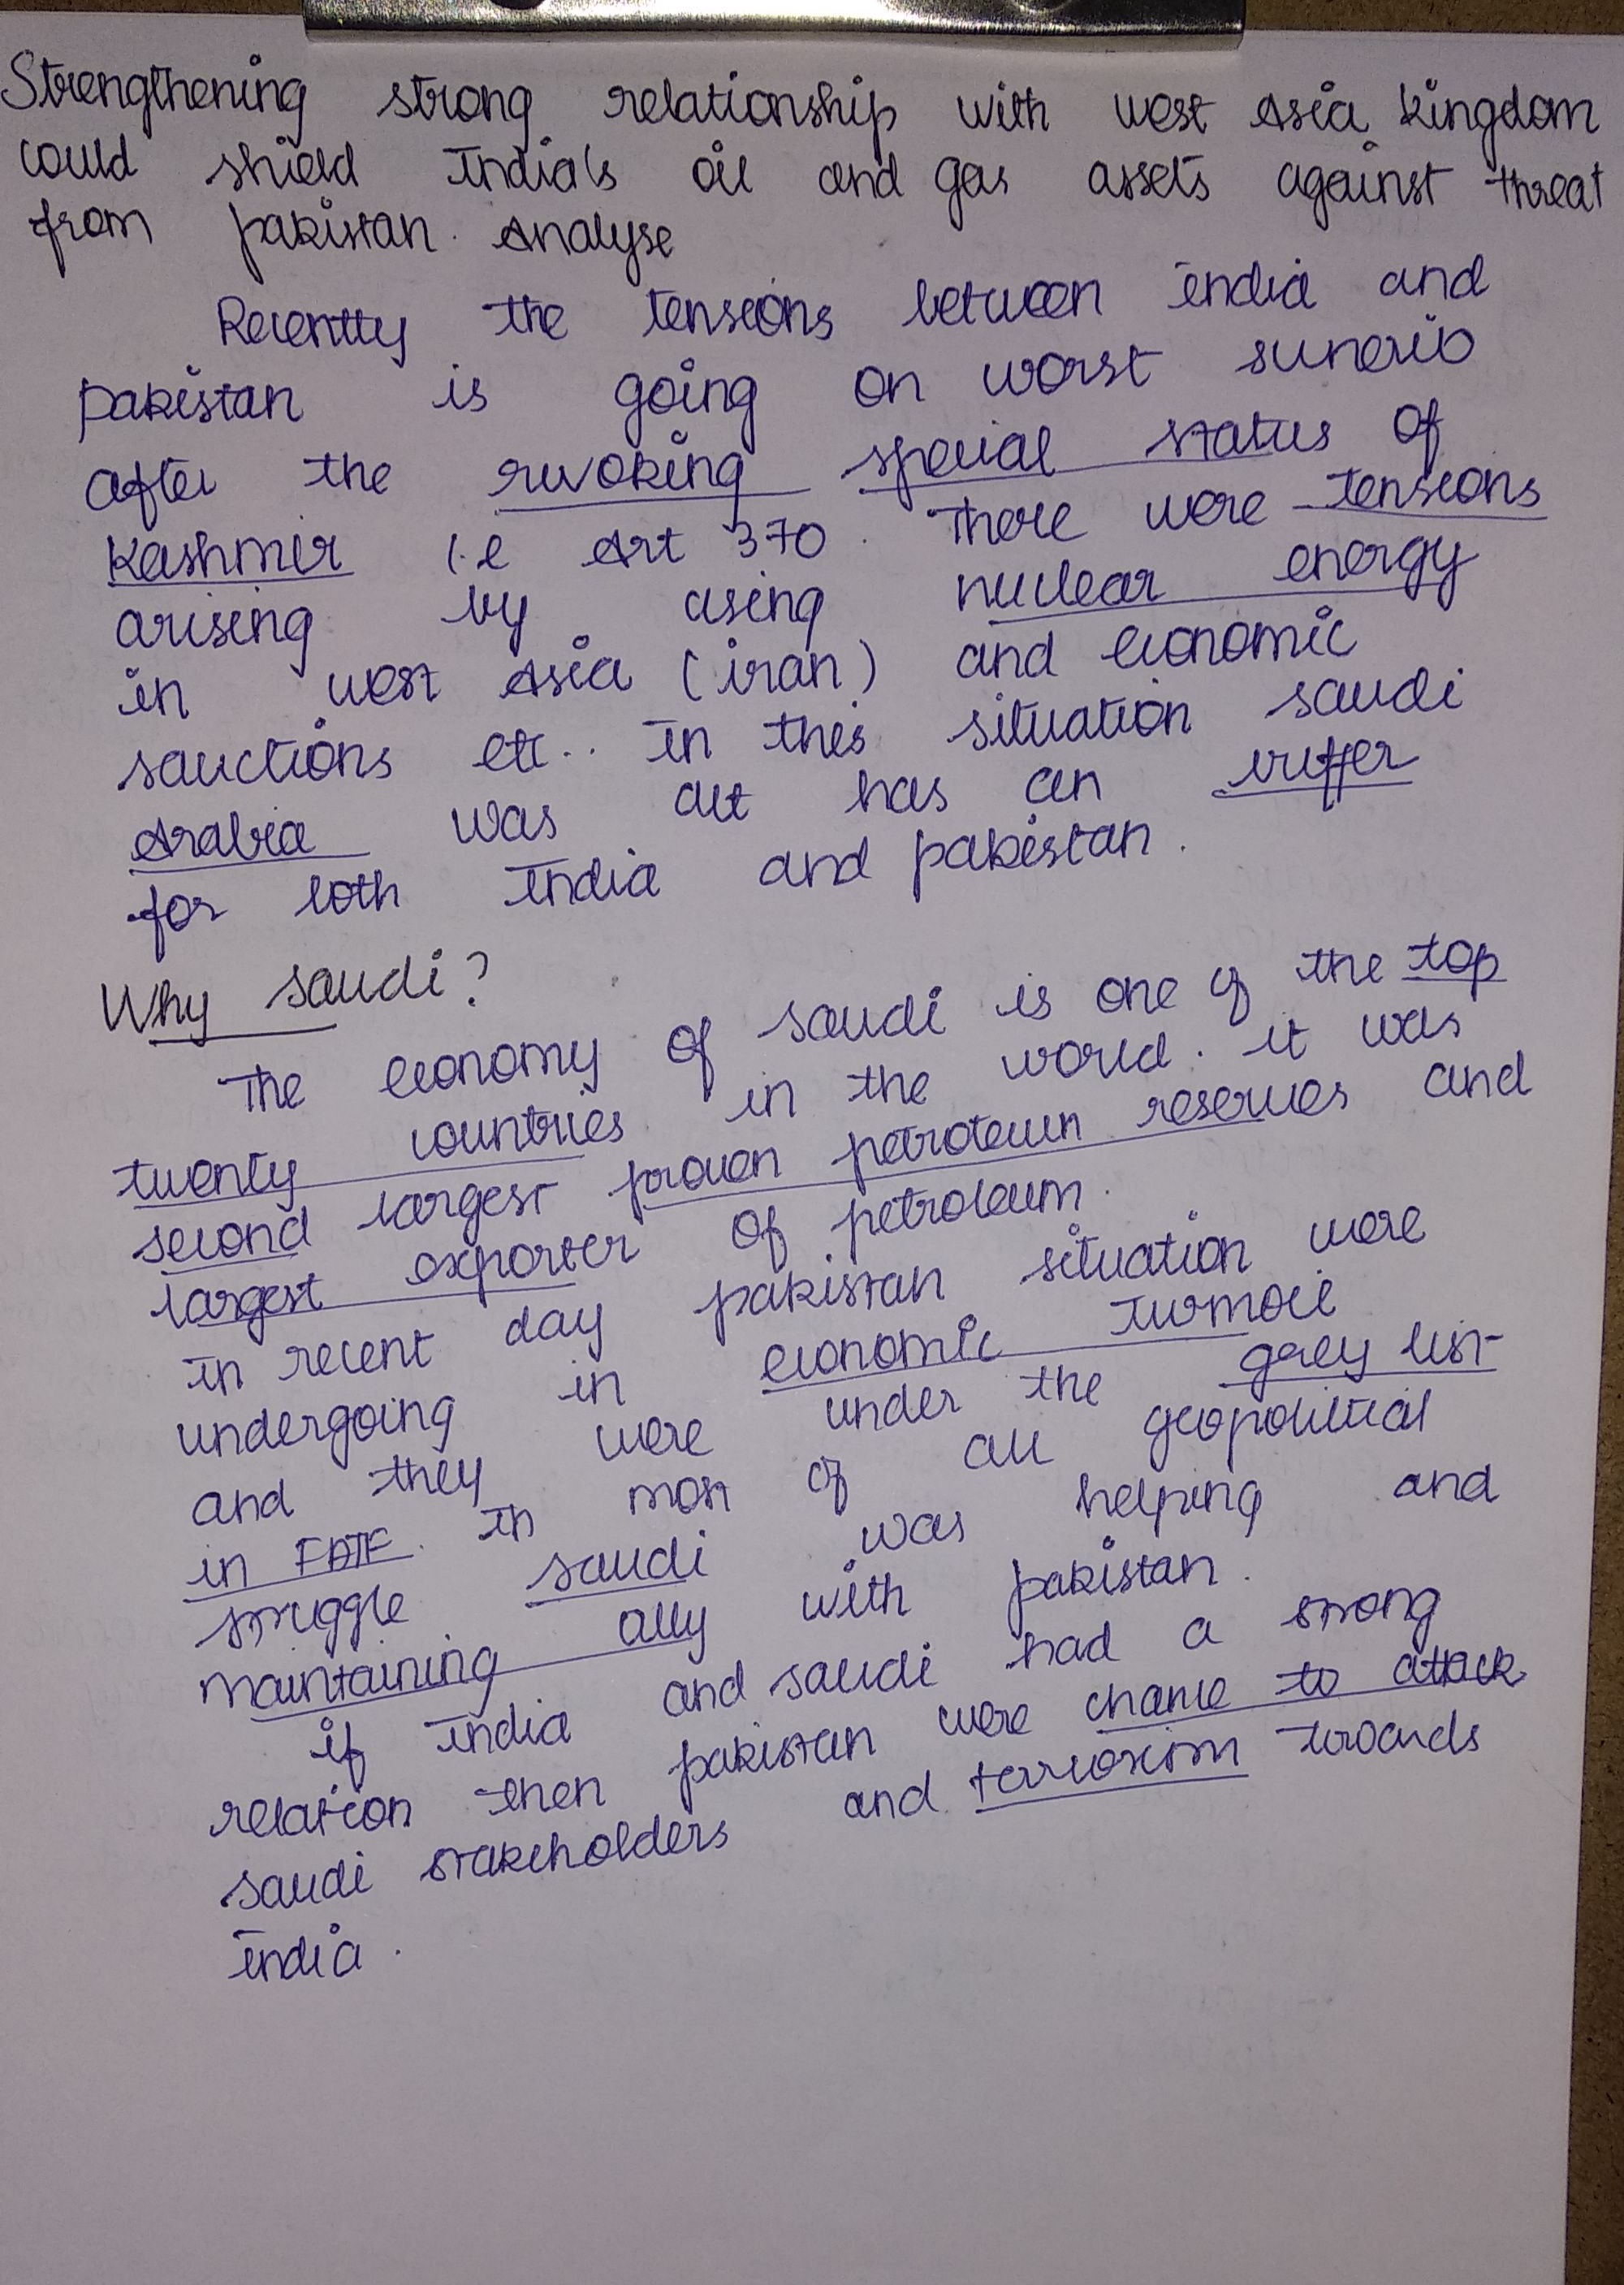 Strengthening strong relationship with west Asia kingdom
could shield India's oil and gas assets against threat
from pakistan. Analyse
Recently the tensions between india and
pakistan is going on worst sunerio
after the revoking special status of
Kashmir i.e Art 370. There were tensions
arising by using nuclear energy
in west Asia (iran) and economic
sanctions etc.. In this situation saudi
Arabia was act has an buffer
for both India and pakistan.
Why saudi?
The economy of saudi is one of the top
twenty countries in the world. it was
second largest proven petroleum reserves and
largest exporter of petroleum.
In recent day pakistan situation were
undergoing in economic turmoil
and they were under the grey list
in FATF. In most of all geopolitical
struggle saudi was helping and
maintaining ally with pakistan.
if India and saudi had a strong
relation then pakistan were chance to attack
saudi stakeholders and terrorism towards
india.